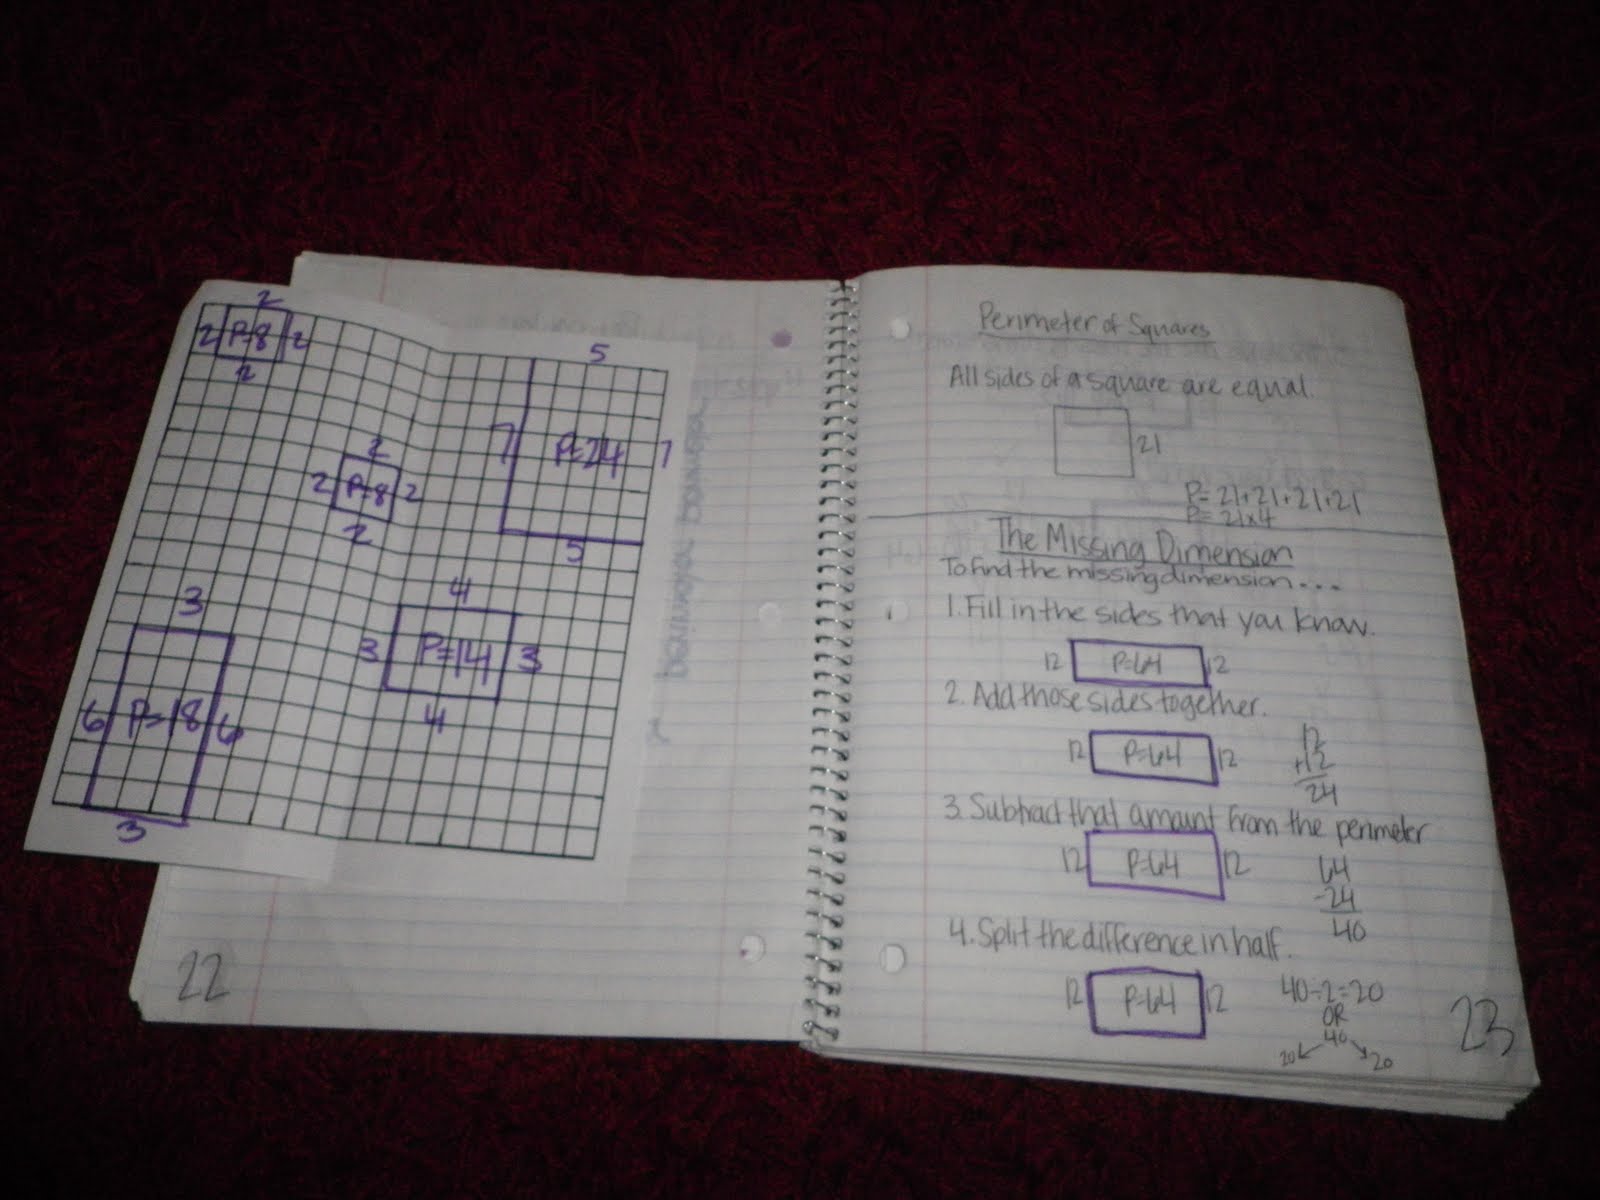 2
2 P=8 2
2
5
7 P=24 7
5
2
2 P=8 2
2
4
3 P=14 3
4
3
6 P=18 6
3
22
Perimeter of Squares
All sides of a square are equal.
21
P= 21+21+21+21
P= 21x4
The Missing Dimension
To find the missing dimension...
1. Fill in the sides that you know.
12 P=64 12
2. Add those sides together.
12 P=64 12
12
+12
24
3. Subtract that amount from the perimeter
12 P=64 12
64
-24
40
4. Split the difference in half.
12 P=64 12
40÷2=20
OR
40
20 20
23